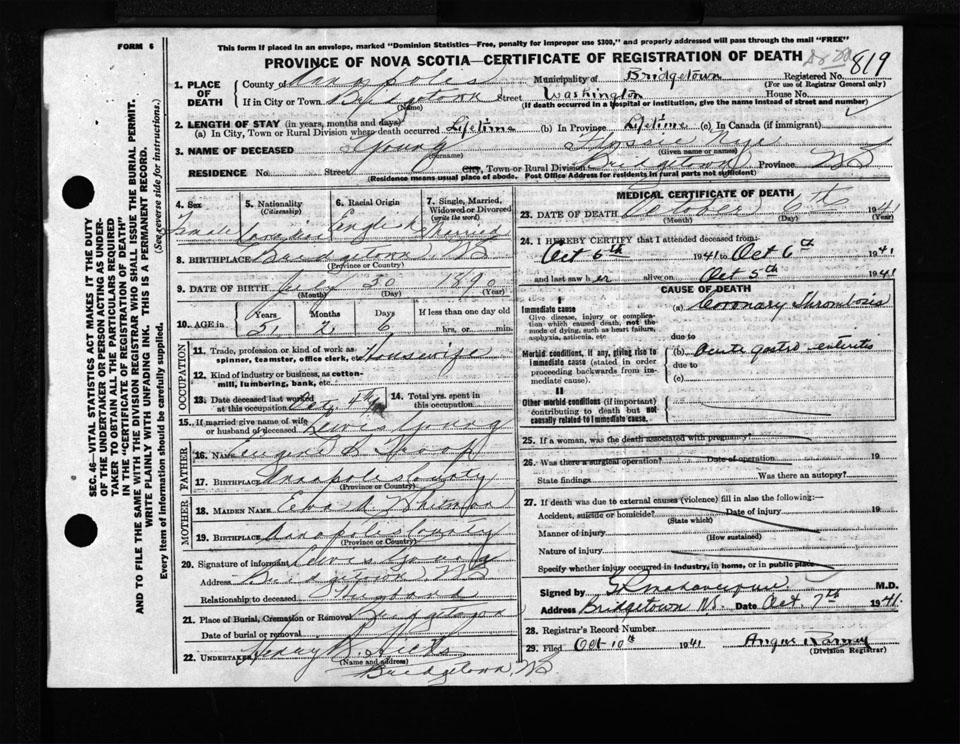 FORM 6
This form if placed in an envelope, marked "Dominion Statistics—Free, penalty for improper use $300," and properly addressed will pass through the mail "FREE"
PROVINCE OF NOVA SCOTIA—CERTIFICATE OF REGISTRATION OF DEATH
819
SEC. 46—VITAL STATISTICS ACT MAKES IT THE DUTY
OF THE UNDERTAKER OR PERSON ACTING AS UNDER-
TAKER TO OBTAIN ALL THE PARTICULARS REQUIRED
IN THE "CERTIFICATE OF REGISTRATION OF DEATH"
AND TO FILE THE SAME WITH THE DIVISION REGISTRAR WHO SHALL ISSUE THE BURIAL PERMIT.
WRITE PLAINLY WITH UNFADING INK. THIS IS A PERMANENT RECORD.
Every item of information should be carefully supplied. (See reverse side for instructions.)
1. PLACE OF DEATH
County Annapolis Municipality of Bridgetown Registered No.
(For use of Registrar General only)
If in City or Town Bridgetown Street Washington House No.
(Name) (If death occurred in a hospital or institution, give the name instead of street and number)
2. LENGTH OF STAY (in years, months and days)
(a) In City, Town or Rural Division where death occurred Lifetime (b) In Province Lifetime (c) In Canada (if immigrant)
3. NAME OF DECEASED Young
(Surname) (Given name or names)
RESIDENCE No. Street City, Town or Rural Division Bridgetown Province NS
(Residence means usual place of abode. Post Office Address for residents in rural parts not sufficient)
4. Sex Female
5. Nationality (Citizenship) Canadian
6. Racial Origin English
7. Single, Married, Widowed or Divorced (write the word) Married
8. BIRTHPLACE Bridgetown NS
(Province or Country)
9. DATE OF BIRTH July 30 1890
(Month) (Day)
10. AGE in Years Months Days If less than one day old
51 2 6 hrs, or min.
OCCUPATION
11. Trade, profession or kind of work as spinner, teamster, office clerk, etc. Housewife
12. Kind of industry or business, as cotton-mill, lumbering, bank, etc.
13. Date deceased last worked at this occupation Oct 4
14. Total yrs. spent in this occupation
15. If married give name of wife or husband of deceased Lewis Young
FATHER
16. Name Eugene B
17. Birthplace Annapolis County
(Province or Country)
MOTHER
18. MAIDEN NAME
19. Birthplace Annapolis County
(Province or Country)
20. Signature of informant Lewis Young
Address Bridgetown NS
Relationship to deceased Husband
21. Place of Burial, Cremation or Removal Bridgetown
Date of burial or removal
22. UNDERTAKER Henry B. Hicks
(Name and address)
Bridgetown, NS
MEDICAL CERTIFICATE OF DEATH
23. DATE OF DEATH October 6th 1941
(Month) (Day) (Year)
24. I HEREBY CERTIFY that I attended deceased from:
Oct 6th 1941 to Oct 6th 1941
and last saw her alive on Oct 5th 1941
CAUSE OF DEATH
I
Immediate cause (a) Coronary Thrombosis
Give disease, injury or complication which caused death, not the mode of dying, such as heart failure, asphyxia, asthenia, etc
due to
Morbid conditions, if any, giving rise to immediate cause (stated in order proceeding backwards from immediate cause). (b) Acute gastro enteritis
due to
(c)
II
Other morbid conditions (if important) contributing to death but not causally related to immediate cause.
25. If a woman, was the death associated with pregnancy?
26. Was there a surgical operation? Date of operation 19
State findings Was there an autopsy?
27. If death was due to external causes (violence) fill in also the following:—
Accident, suicide or homicide? Date of injury 19
(State which)
Manner of injury
(How sustained)
Nature of injury
Specify whether injury occurred in industry, in home, or in public place
Signed by M.D.
Address Bridgetown NS. Date Oct. 7th 1941
28. Registrar's Record Number
29. Filed Oct 10th 1941 Angus
(Division Registrar)